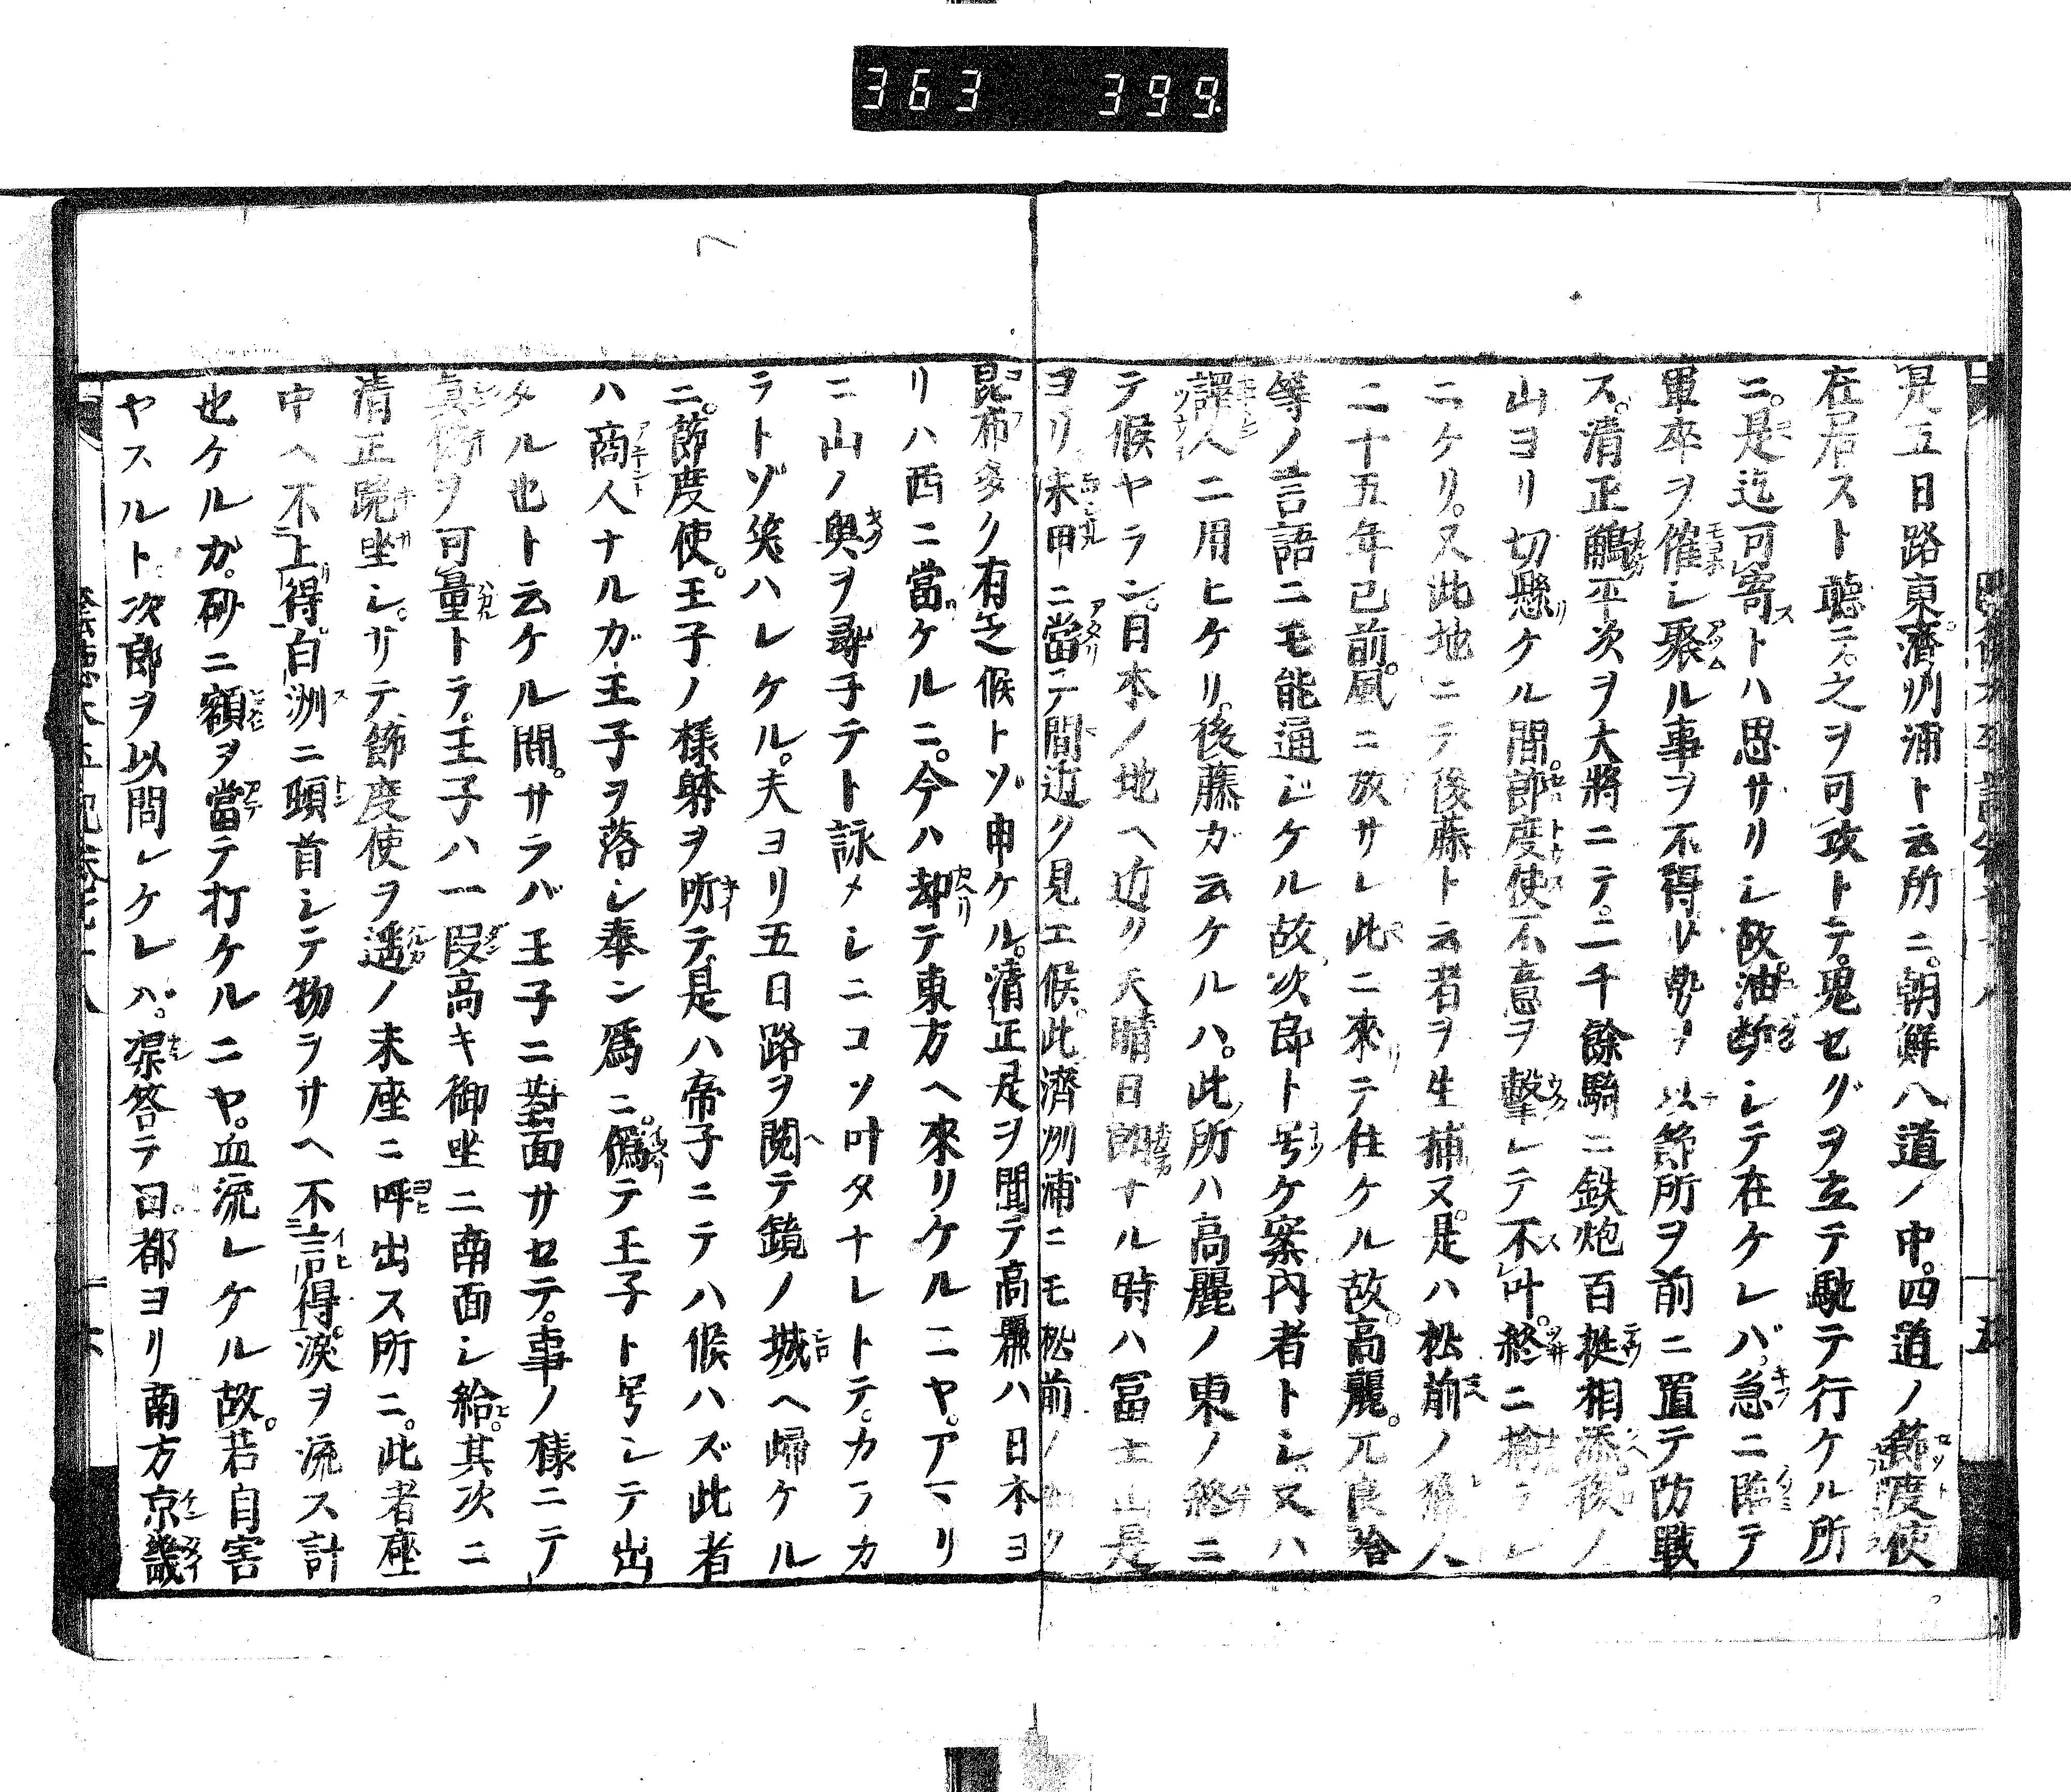 363 399
是五日路東濟州浦ト云所ニ。朝鮮八道ノ中。四道ノ節度使
在居スト聽ニ。之ヲ可攻トテ。鬼セグヲ立テ馳テ行ケル所
ニ。是迄可寄トハ思サリシ故。油断シテ在ケレバ。急ニ陣テ
軍卒ヲ催シ聚ル事ヲ不得。勢ヲ以節所ヲ前ニ置テ防戰
ス。清正鵤平次ヲ大將ニテ。二千餘騎ニ鉄炮百挺相添。後ノ
山ヨリ切懸ケル間。節度使不意ヲ擊レテ不叶。終ニ擒ラレ
ニケリ。又此地ニテ後藤ト云者ヲ生捕ヌ。是ハ松前ノ 人
二十五年已前。風ニ放サレ此ニ來テ住ケル故。高麗。兀良哈
等ノ言語ニモ能通ジケル故。次郎ト号ケ案内者トシ。又ハ
譯人ニ用ヒケリ。後藤ガ云ケルハ。此所ハ高麗ノ東ノ終ニ
テ候ヤラン。日本ノ地ヘ近ク天晴日朗ナル時ハ冨士山是
ヨリ未申ニ當テ間近ク見エ候。此濟州浦ニモ松前ノ ク
昆布多ク有之候トゾ申ケル。清正是ヲ聞テ高麗ハ日本ヨ
リハ西ニ當ケルニ。今ハ却テ東方ヘ來リケルニヤ。アマリ
ニ山ノ奥ヲ尋子テト詠メシニコソ叶タナレトテ。カラカ
ラトゾ笑ハレケル。夫ヨリ五日路ヲ閲テ鏡ノ城ヘ歸ケル
ニ。節度使。王子ノ樣躰ヲ吩テ是ハ帝子ニテハ候ハズ此者
ハ商人ナルガ王子ヲ落シ奉ン爲ニ。僞テ王子ト号シテ出
タル也ト云ケル間。サラバ王子ニ對面サセテ。事ノ樣ニテ
真僞ヲ可量トテ。王子ハ一段高キ御坐ニ南面シ給。其次ニ
清正跪坐シ。サテ節度使ヲ遥ノ末座ニ呼出ス所ニ。此者座
中ヘ不上得白洲ニ頭首シテ物ヲサヘ不言得。涙ヲ流ス計
也ケルガ。砂ニ額ヲ當テ打ケルニヤ。血流レケル故。若自害
ヤスルト。次郎ヲ以問レケレハ。渠答テ曰都ヨリ南方京畿